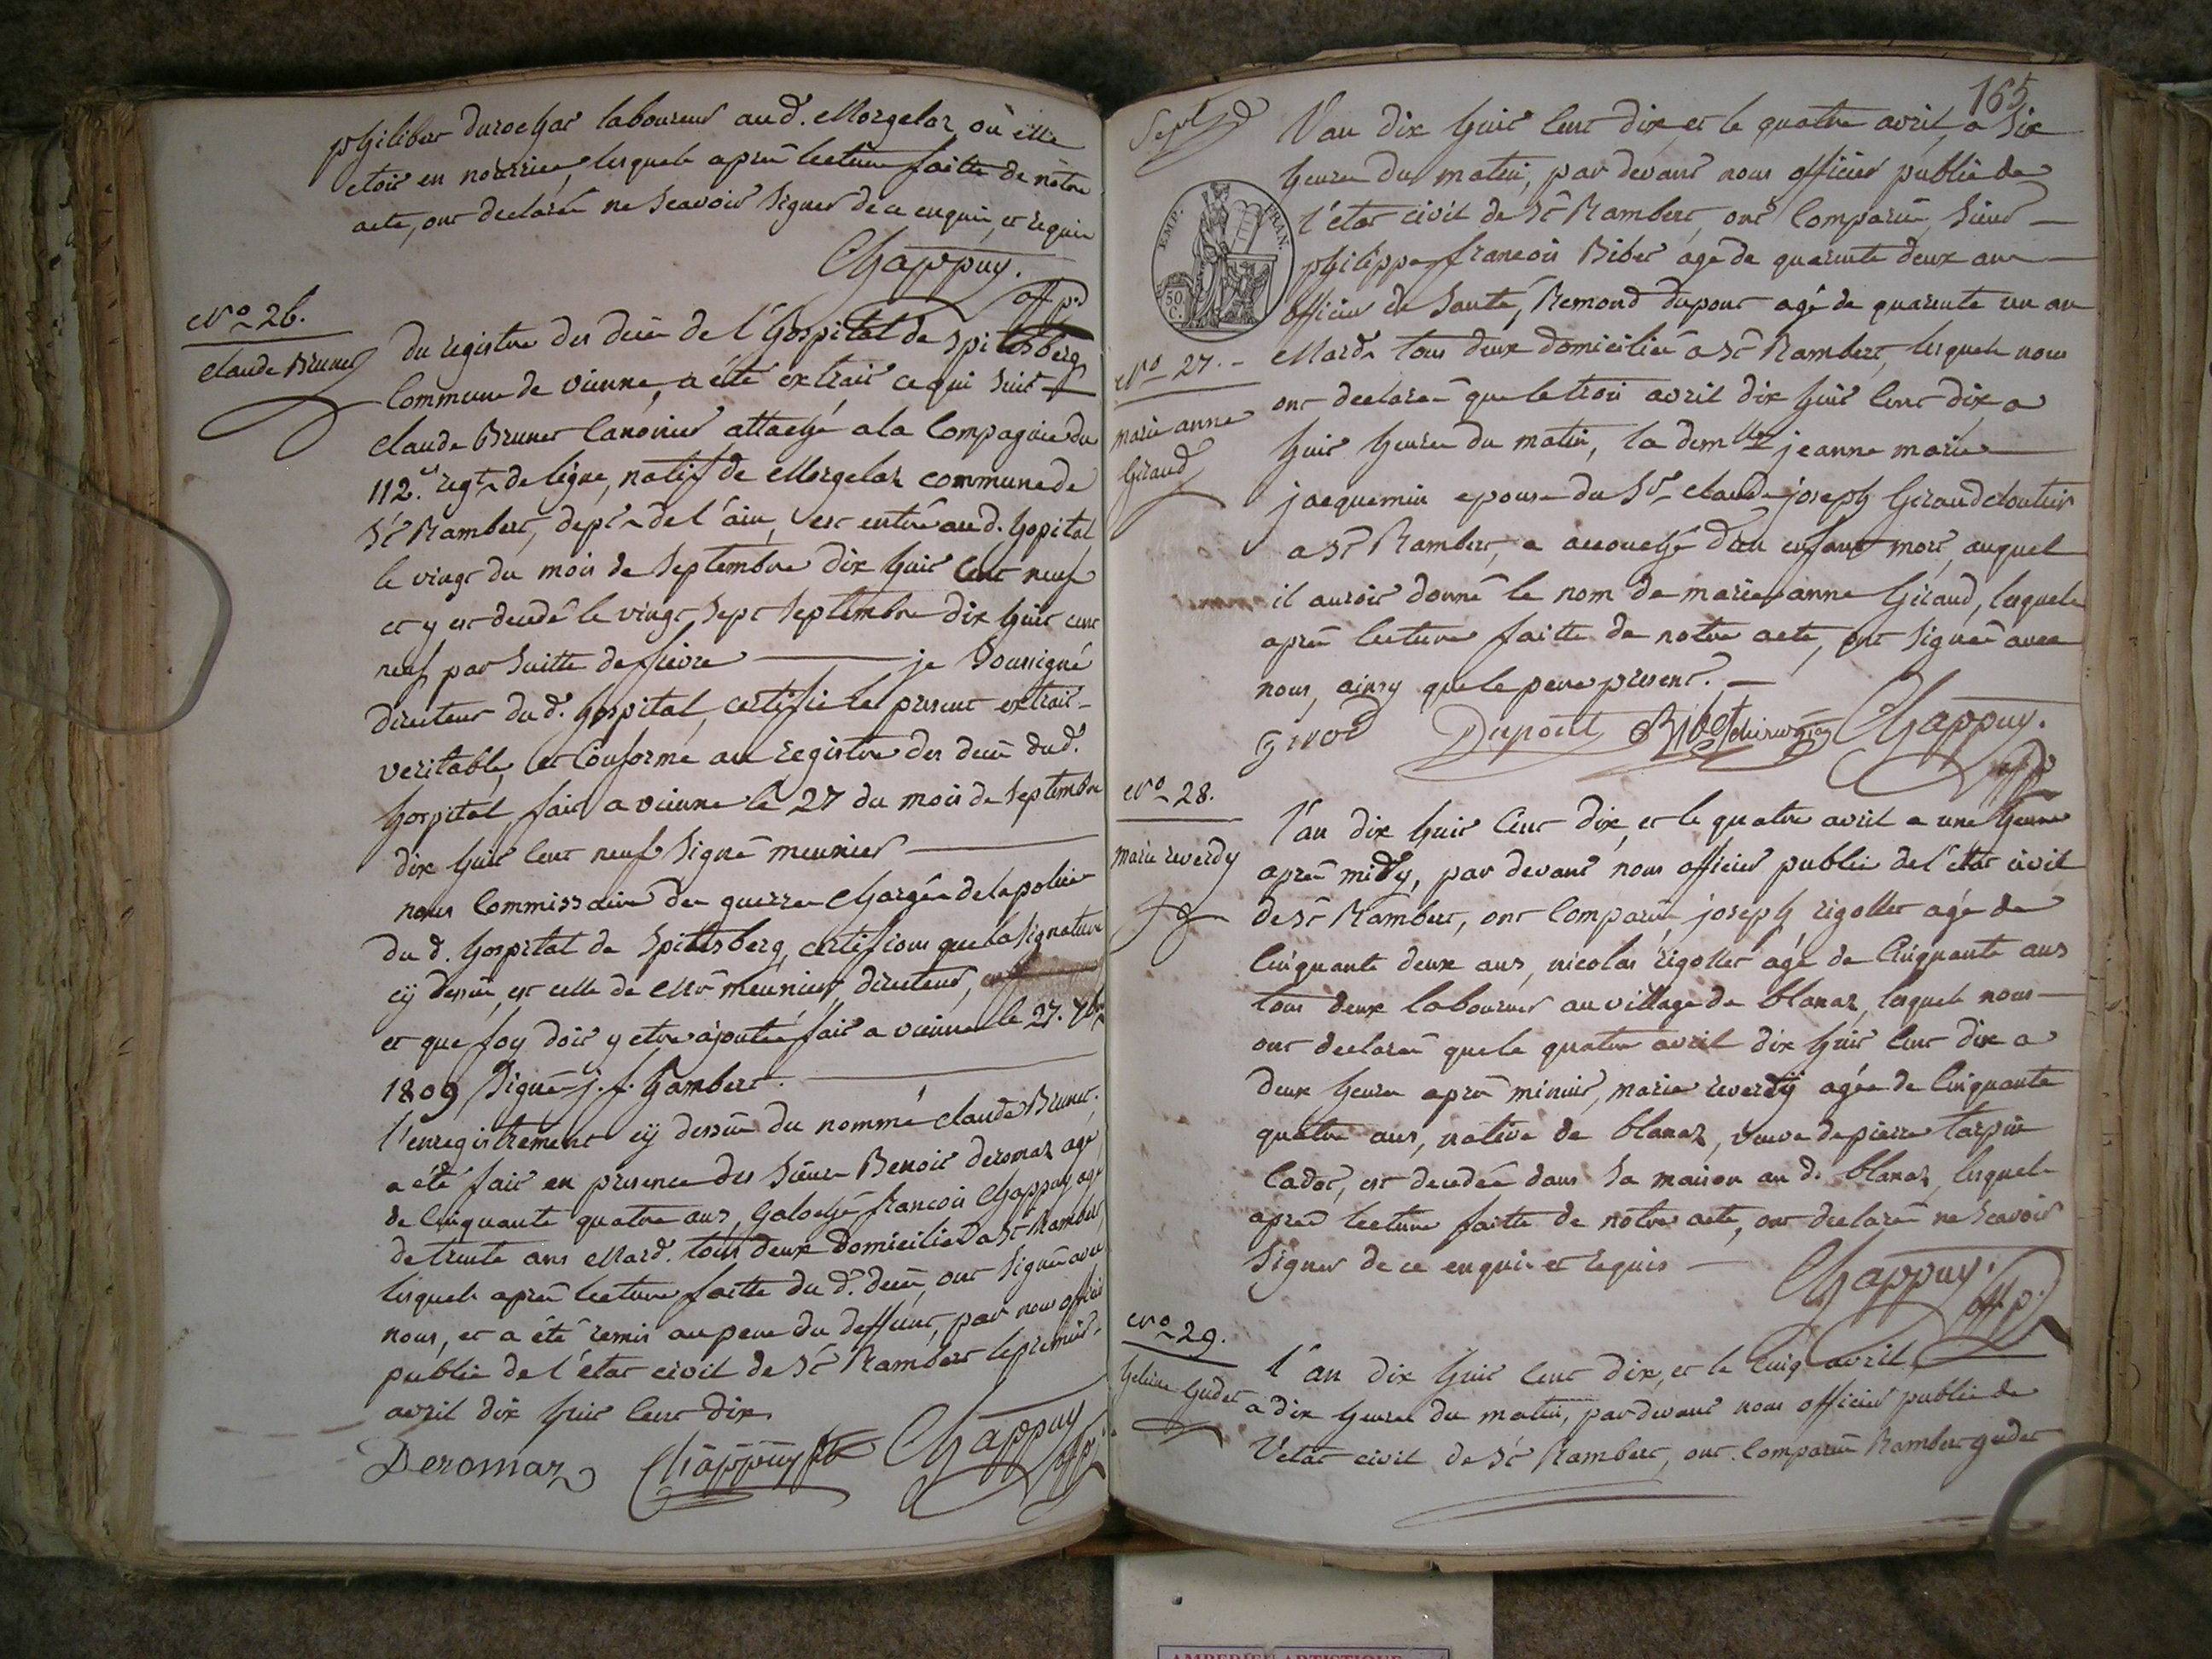 philiber durochat laboureur aud. Morgelaz, où elle
etoit en nourrice, lesquels après lecture faitte de nôtre
acte, ont declarés ne scavoir signer de ce enquis, et requis
Chappuy.
off. p.
N.o 26.
Claude Brunet
du registre des decès de l'hospital de spitelsberg
Commune de vienne, a été extrait ce qui suit
Claude Brunet Canonier attaché a la Compagnie du
112.e regt. de ligne, natif de Morgelaz commune de
St Rambert, dept. de l'ain, est entré aud. hopital
le vingt du mois de septembre dix huit cent neuf
et y est decedé le vingt sept septembre dix huit cent
neuf par suitte de fievre je soussigné
directeur du d. hospital, certifie le present extrait
veritable, et Conforme au registre des decès dud.
hospital, fait a vienne le 27 du mois de septembre
dix huit cent neuf signé meunier
nous Commissaire des guerres Chargée de la police
du d. hospital de spitelsberg, certifions que la signature
cÿ dessus, est celle de Mr meunier directeur,
et que foy doit y etre ajoutée fait a vienne le 27. 7bre
1809 signé j. f. hambert.
l'enregistrement cÿ dessus du nommé claude Brunet.
a été fait en presence des sieurs Benoit deromaz agé
de Cinquante quatre ans, galoché francois Chappuy agé
de trente ans Mard. tous deux domiciliés a St Rambert
lesquels après lecture faitte du d. decès, ont signés avec
nous, et a été remis au pere du deffunt, par nous officier
public de l'état civil de St Rambert le premier
avril dix huit cent dix
Deromaz Chappuy Chappuy
off. p.
165
Sept
L'an dix huit cent dix et le quatre avril, a six
heures du matin, par devant nous officier public de
l'état civil de St Rambert, ont Comparus, sieur
philippe francois Bibet agé de quarante deux ans
officier de santé, Remond dupont agé de quarante un an
EMP. FRAN.
50 C.
N.o 27.
marie anne
Giraud
Mard. tous deux domiciliés a St Rambert, lesquels nous
ont declarés que le trois avril dix huit cent dix a
huit heures du matin, la demlle jeanne marie
jacquemin epouse du Sr. claude joseph Giraud cloutier
a St Rambert, a accouché d'un enfant mort, auquel
il auroit donné le nom de marie anne Giraud, lesquels
après lecture faitte de notre acte, ont signés avec
nous, ainsy que le pere present.
girod Dupont Bibet chirurgien Chappuy.
off. p.
N.o 28.
marie reverdy
l'an dix huit cent dix, et le quatre avril a une heure
après midy, par devant nous officier public de l'état civil
de St Rambert, ont Comparus, joseph rigollet agé de
Cinquante deux ans, nicolas rigollet agé de Cinquante ans
tous deux laboureurs au village de blanaz, lesquels nous
ont declarés que le quatre avril dix huit cent dix a
deux heures après minuit, marie reverdÿ agée de Cinquante
quatre ans, native de blanaz, veuve de pierre tarpin
Cadot, est decedée dans sa maison au d. blanaz, lesquels
après lecture faitte de nôtre acte, ont declarés ne scavoir
signer de ce enquis et requis
Chappuy.
off. p.
N.o 29.
heleine gudet
l'an dix huit cent dix, et le Cinq avril,
a dix heures du matin, par devant nous officier public de
l'etat civil de St Rambert, ont Comparus Rambert gudet
AMBERIEU ARTISTIQUE